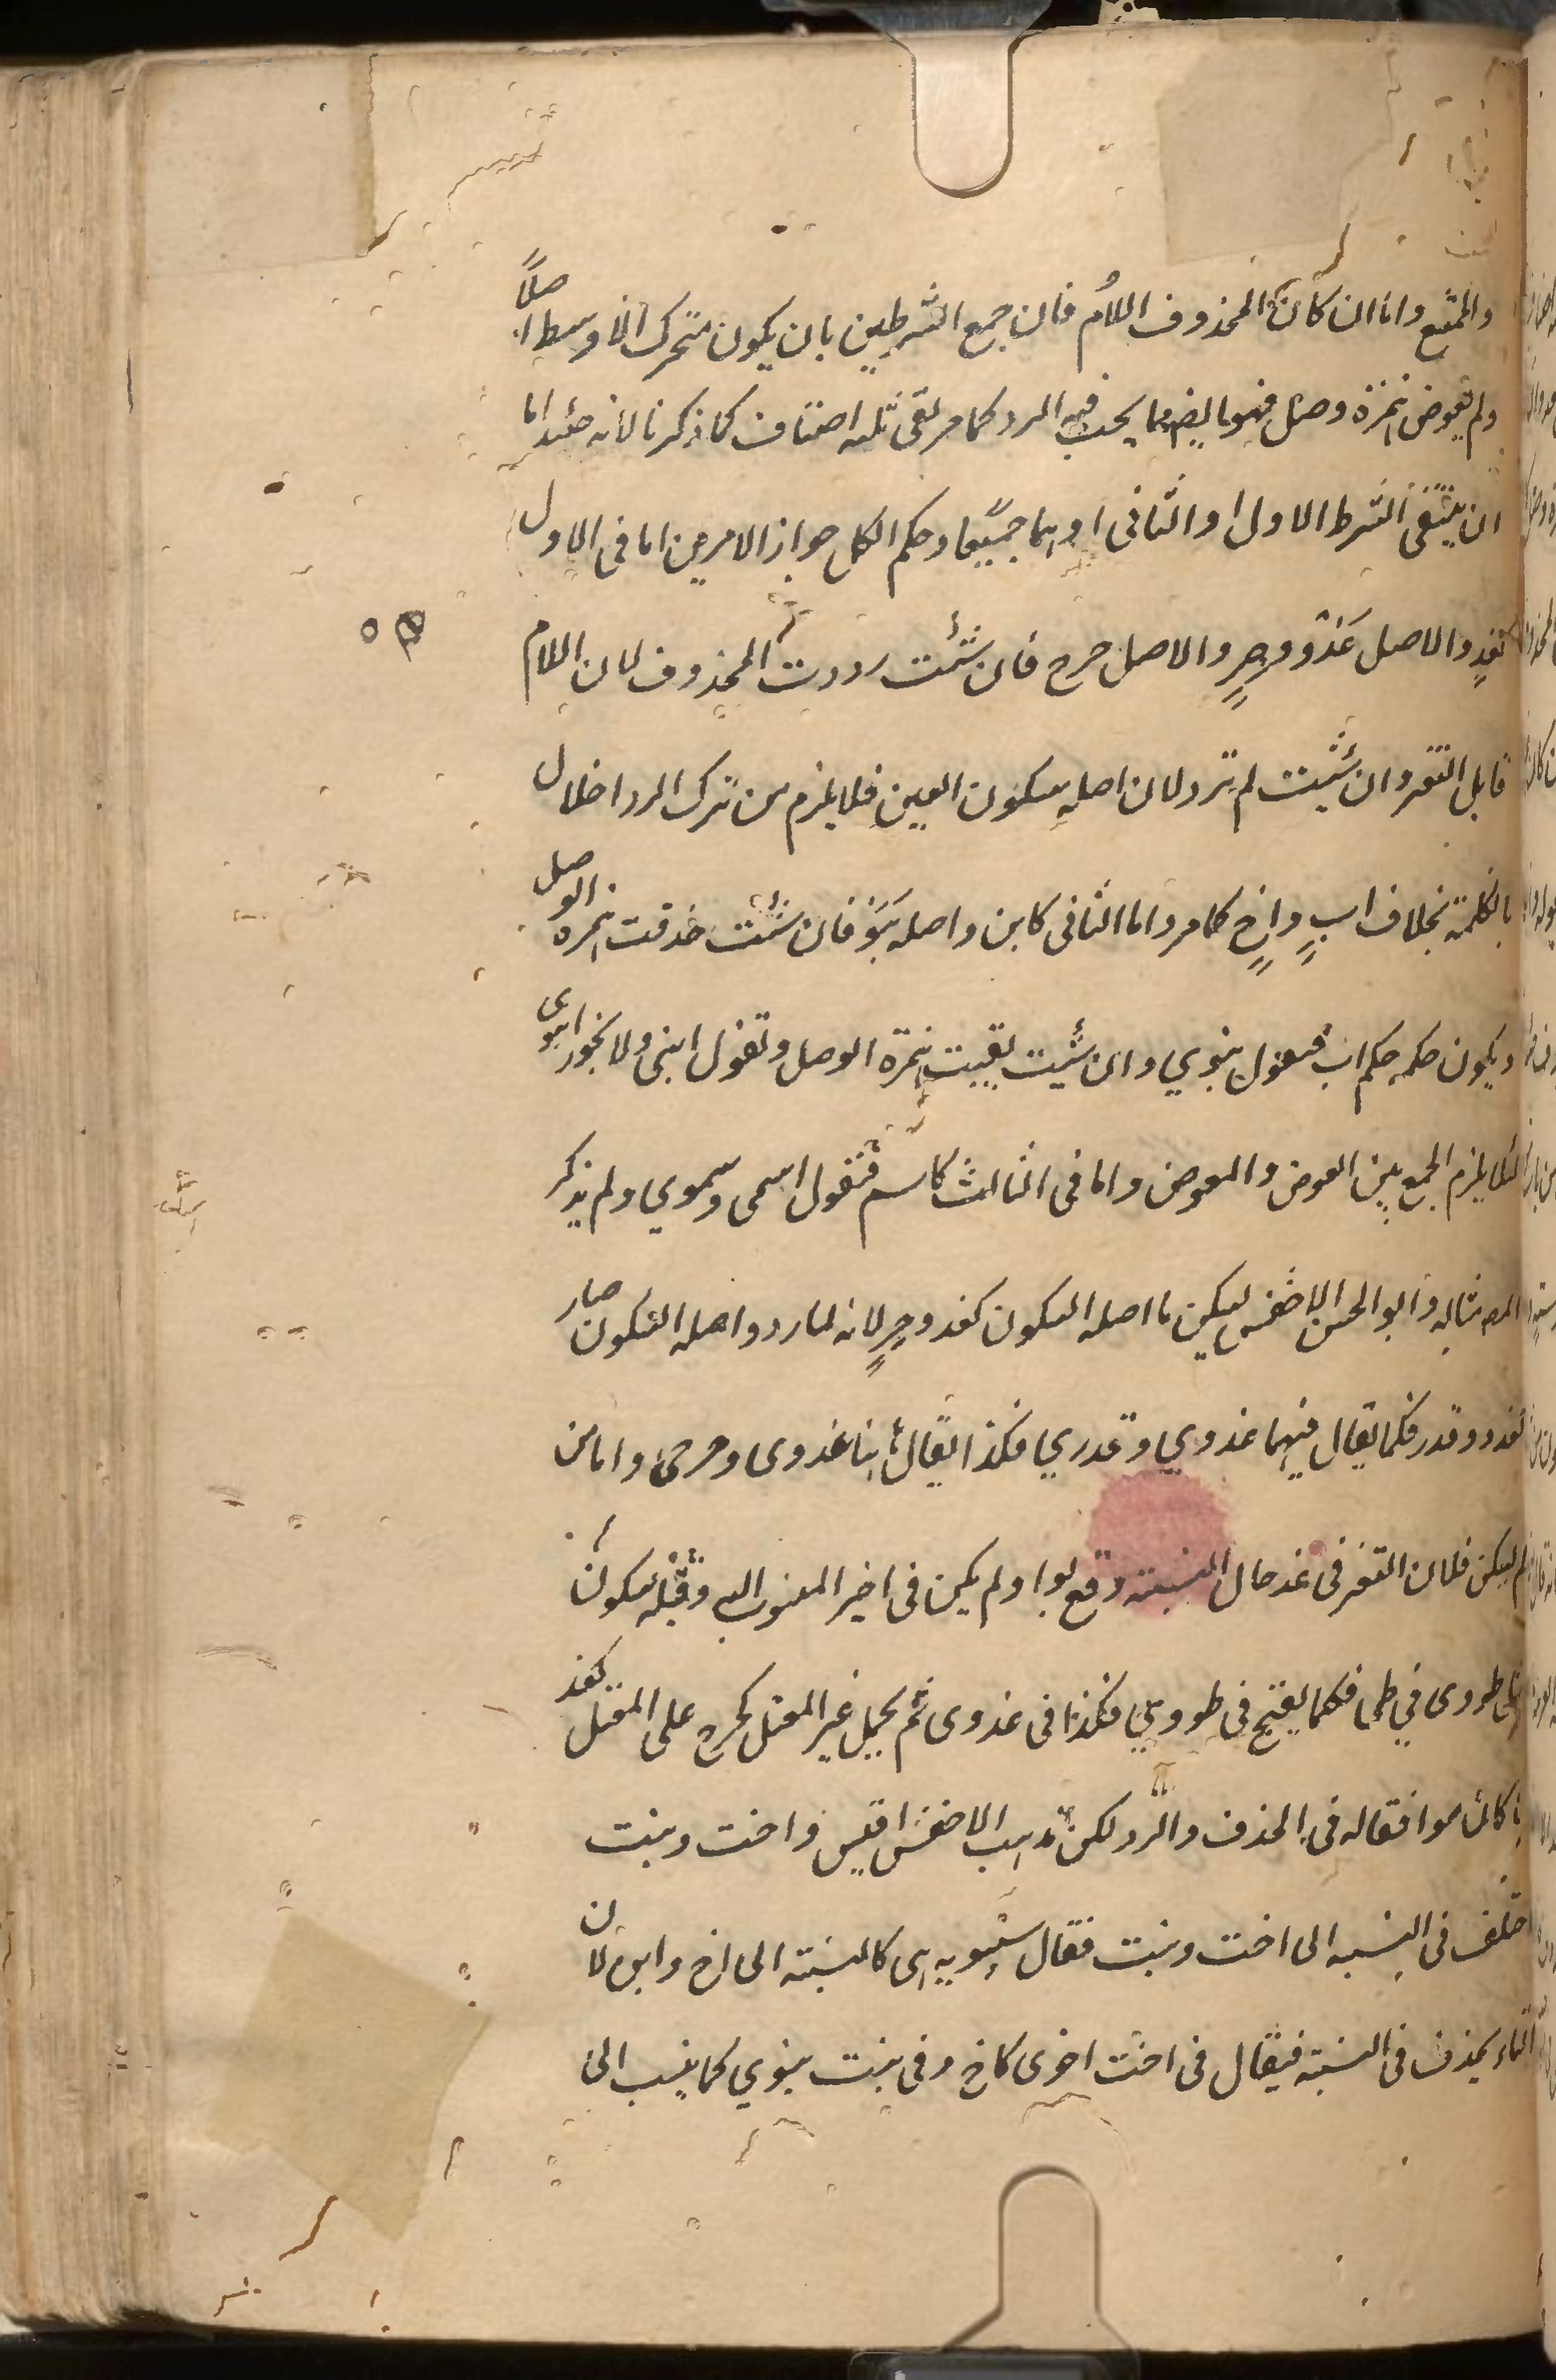 والممتنع واما ان كان المحذوف اللام فان جمع الشرطين بان يكون متحرك الاوسط اصلاً
ولم يعوض همزة وصل فهو ايضا مما يجب فيه الرد كما مر بقى ثلثه اصناف كما ذكرنا لانه حينئذ اما
ان ينتفى الشرط الاول او الثانى او هما جميعا وحكم الكل جواز الامرين اما فى الاول
كغدٍ والاصل غَدْوٌ وحِرٍ والاصل حرح فان شئت رددت المحذوف لان اللام
قابل التغير وان شئت لم ترد لان اصله سكون العين فلا يلزم من ترك الرد اخلال
بالكلمة بخلاف ابٍ واخٍ كما مر واما الثانى كابن واصله بَنَوٌ فان شئت حذفت همزه الوصل
ويكون حكمه حكم اب فتقول بنوي وان شئت بقيت همزة الوصل وتقول ابنى ولا يجوز ابنوى
لئلا يلزم الجمع بين العوض والمعوض واما فى الثالث كاسم فتقول اسمى وسموي ولم يذكر
المص مثاله وابو الحسن الاخفش يسكن ما اصله السكون كغد وحِرٍ لانه لما رد واصله السكون صار
كغدو وقدر فكما يقال فيهما غدوي وقدري فكذا يقال هنا غدوى وحرحى واما من
لم يسكن فلان التغير فى غد حال النسبته وقع بواو لم يكن فى اخير المنسوب اليه وقبله سكون
على طووى في طى فكما يفتح فى طووي فكذا فى غدوى ثم يحمل غير المعتل كحرح على المعتل كغد
لما كان موافقا له فى الحذف والرد لكن مذهب الاخفش اقيس واخت وبنت
اختلف فى النسبه الى اخت وبنت فقال سيبويه هى كالنسبته الى اخ وابن لان
التاء يحذف فى النسبته فيقال فى اخت اخوى كاخ وفى بنت بنوي كما ينسب الى